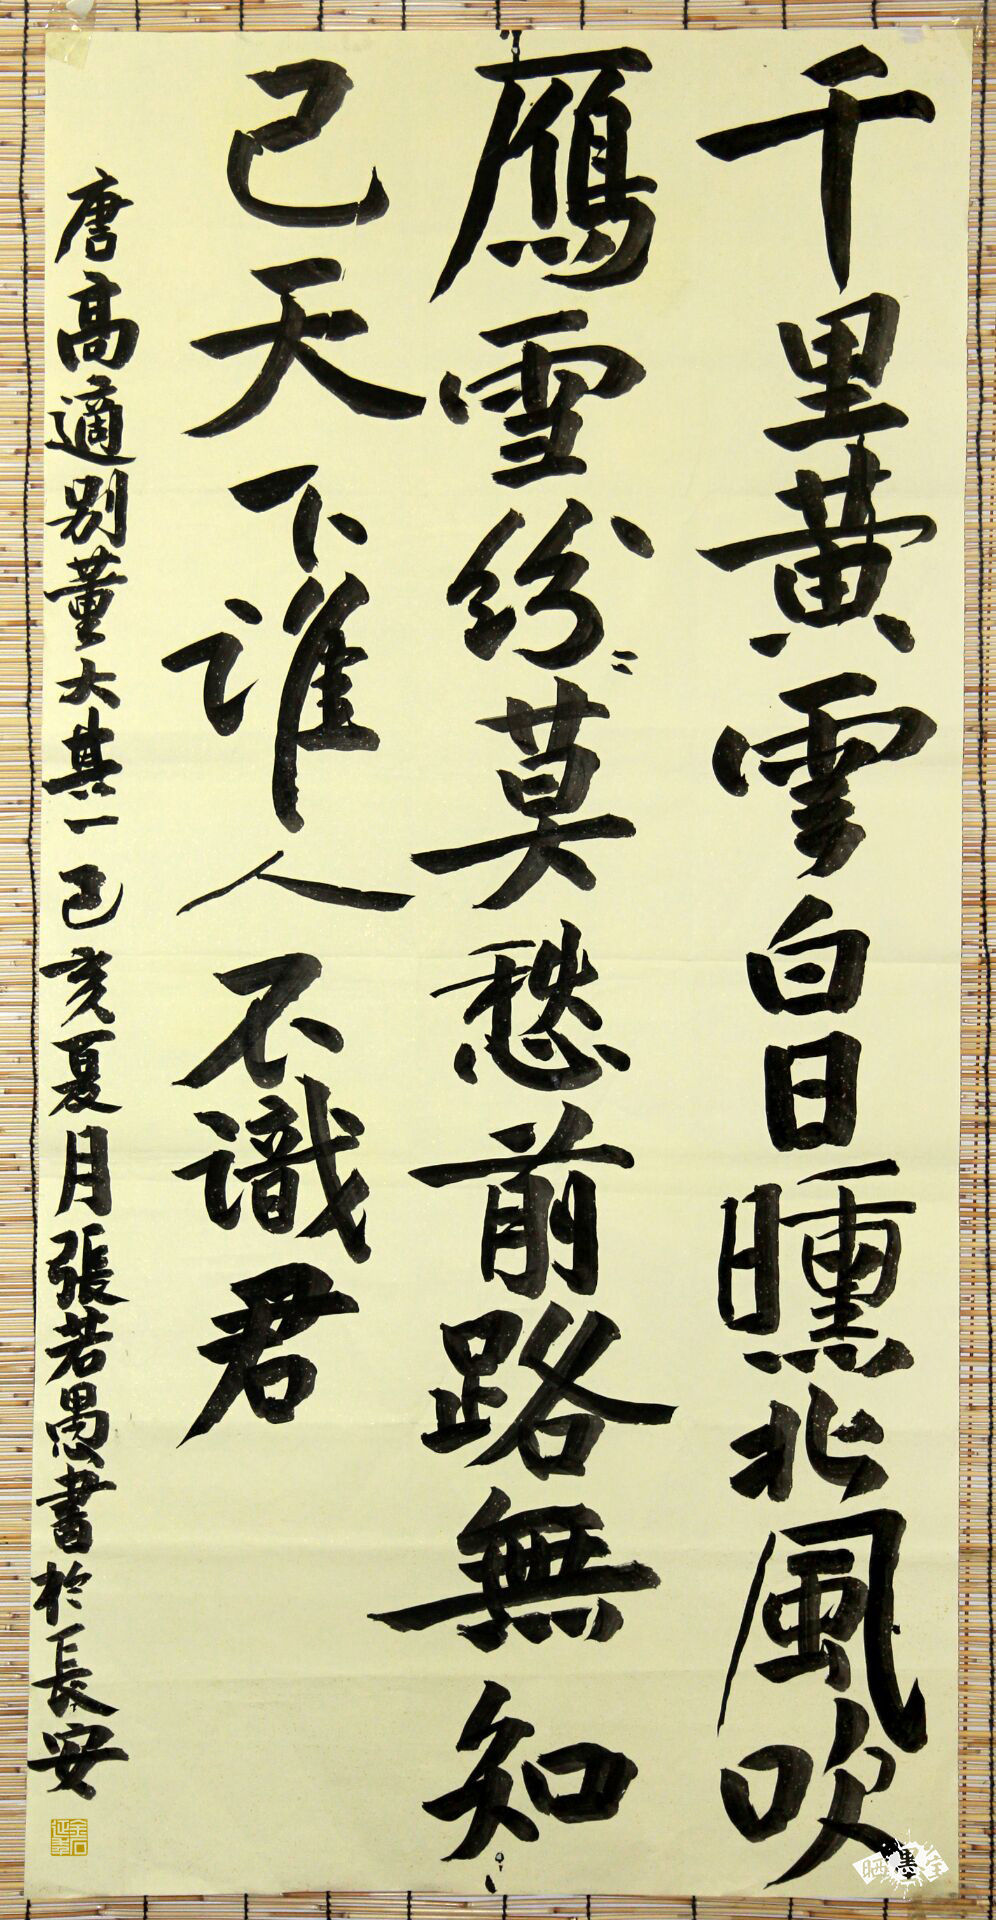 千里黄雲白日曛北風吹
鴈雪紛〻莫愁前路無知
己天下誰人不識君
唐高適别董大其一己亥夏月張若愚書於長安
金石延年
晒墨宝